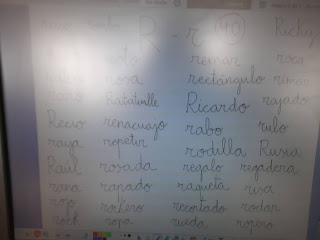 R - r 40 Richy
remar roca
rosa rectángulo rimar
Ratatuille Ricardo rajado
Recio renacuajo rabo rulo
raya repetir rodilla Rusia
Raúl rosada regalo regadera
rana rapado raqueta risa
rojo rockero recortado rodar
rock ropa rueda ropero